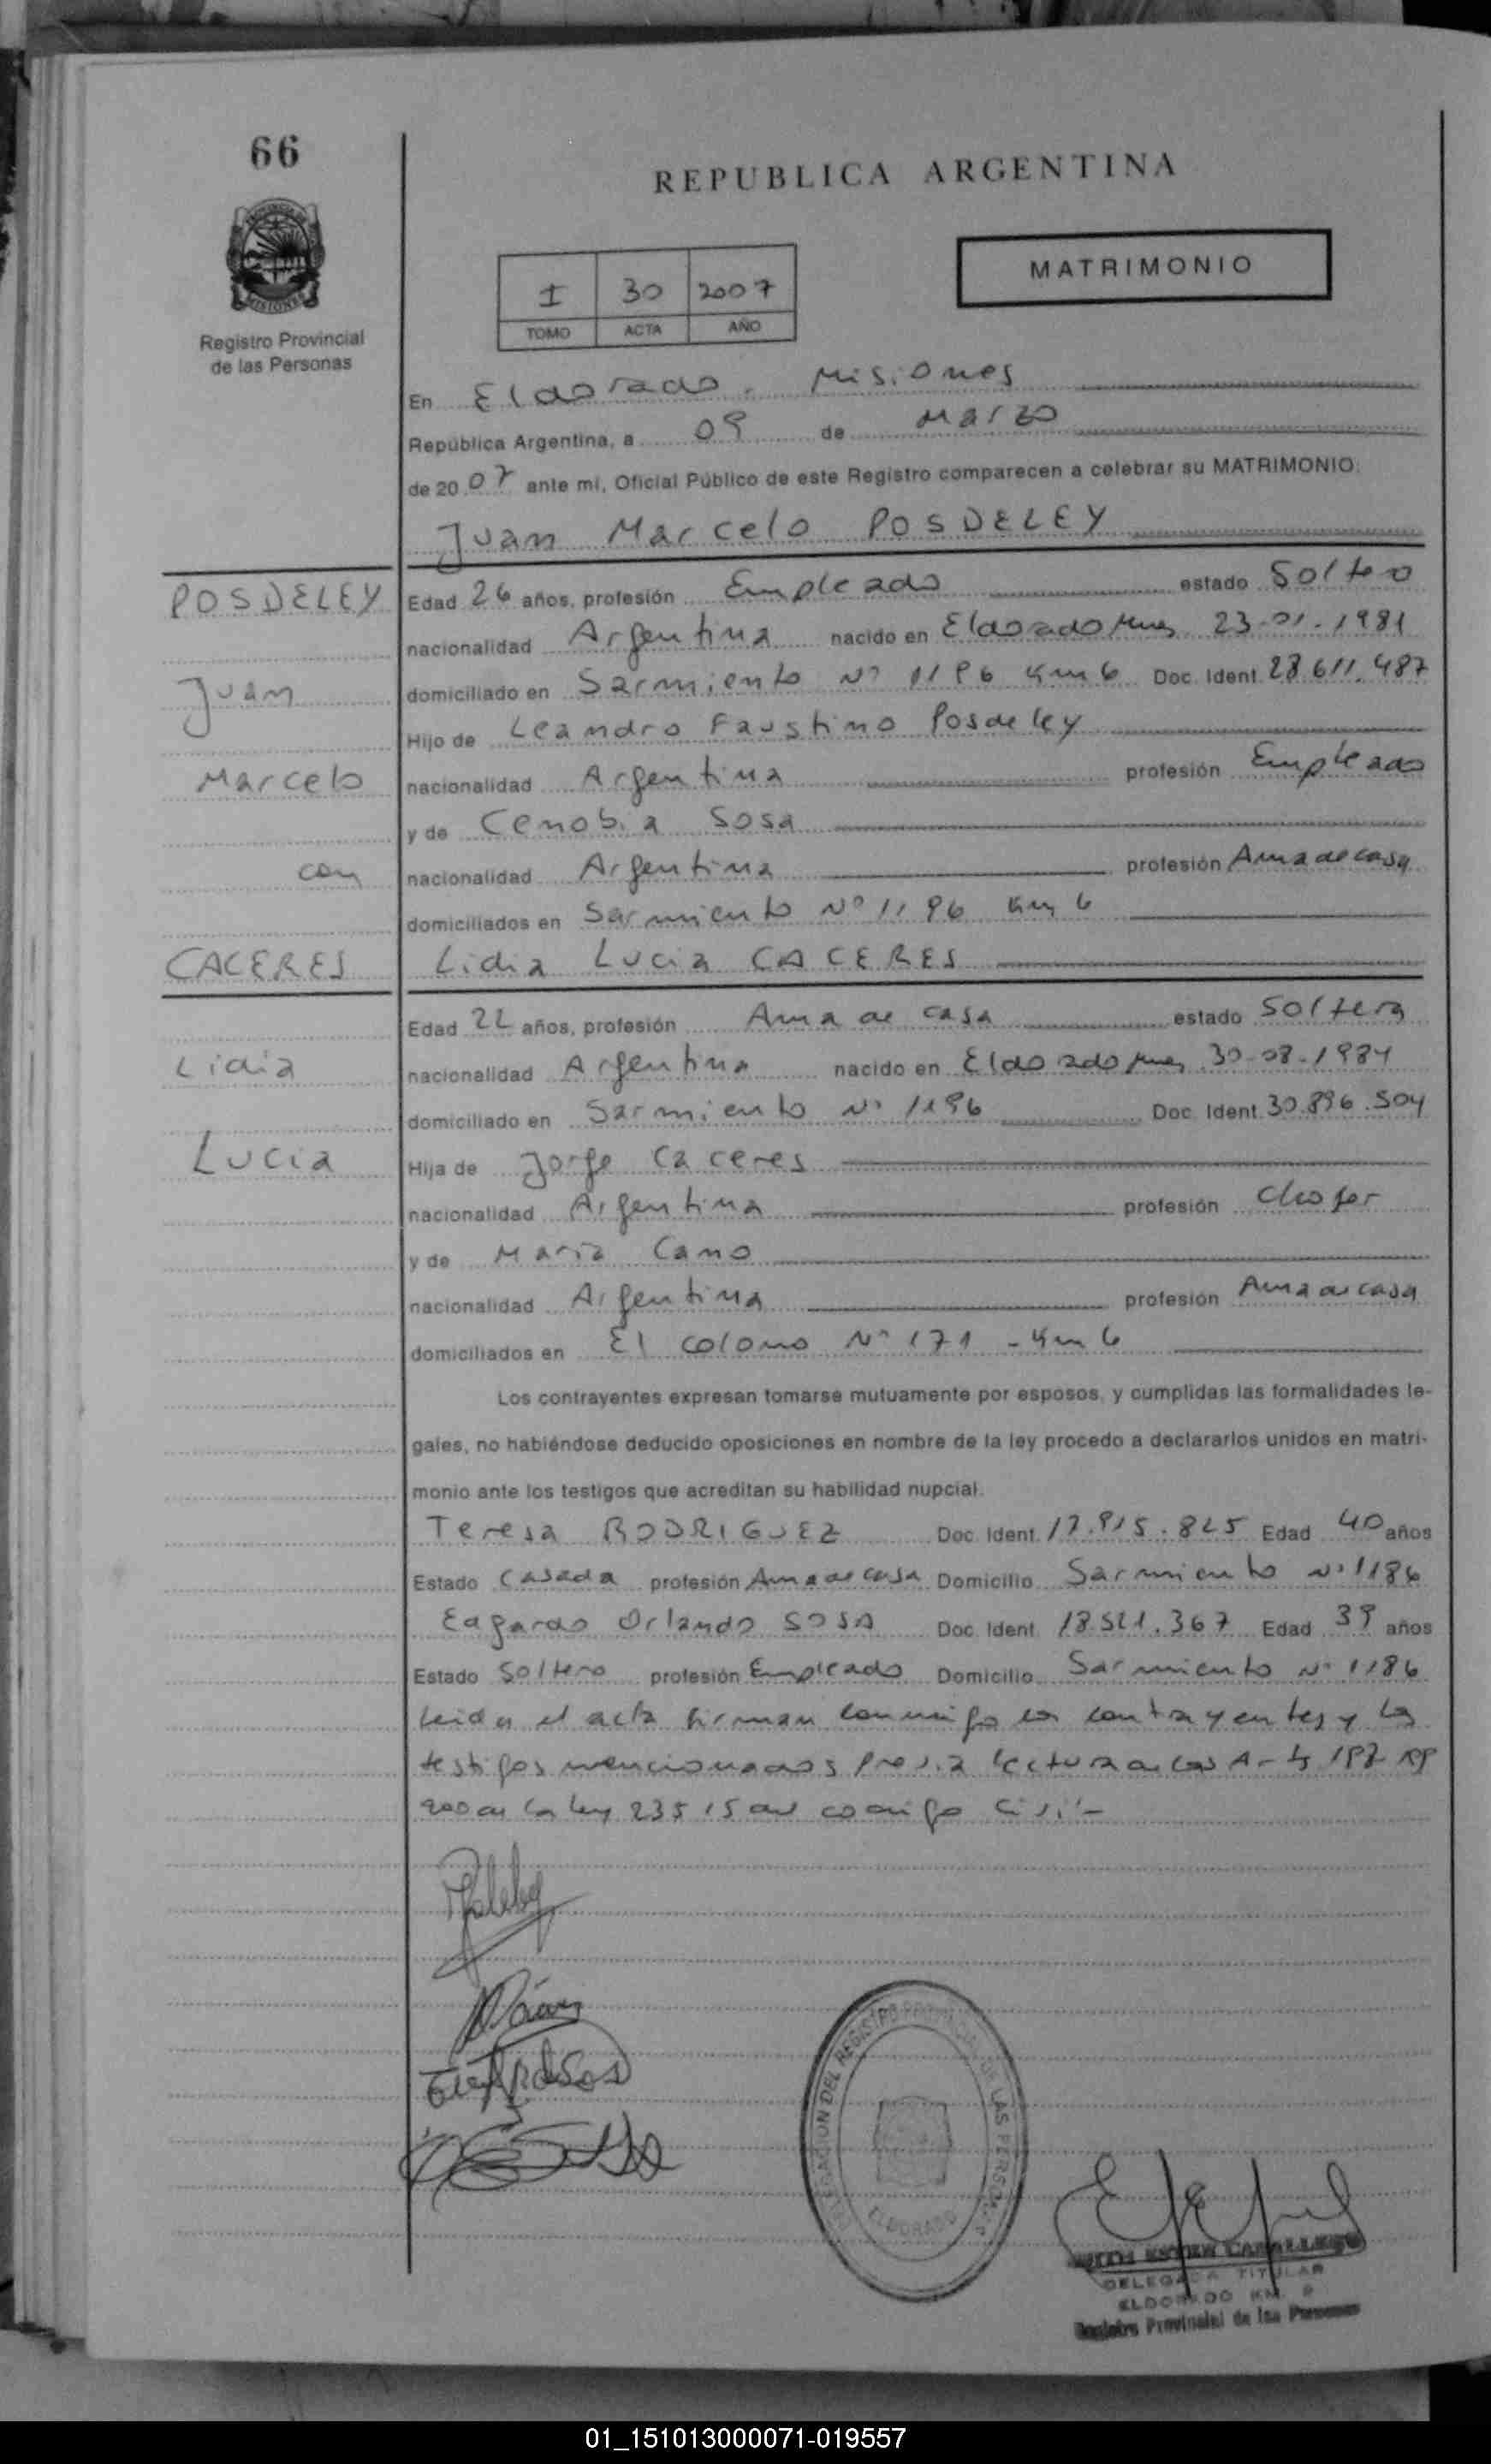 66
REPUBLICA ARGENTINA
PROVINCIA DE
MISIONES
Registro Provincial
de las Personas
MATRIMONIO
I 30 2007
TOMO ACTA AÑO
En Eldorado. Misiones
República Argentina, a 09 de Marzo
de 2007 ante mi, Oficial Público de este Registro comparecen a celebrar su MATRIMONIO:
Juan Marcelo POSDELEY
POSDELEY
Juan
Marcelo
con
CACERES
Lidia
Lucia
Edad 26 años, profesión Empleado estado Soltero
nacionalidad Argentina nacido en Eldorado Mnes 23-01-1981
domiciliado en Sarmiento Nº 1196 Km 6 Doc. Ident. 28.611.487
Hijo de Leandro Faustino Posdeley
nacionalidad Argentina profesión Empleado
y de Cenobia Sosa
nacionalidad Argentina profesión Ama de casa
domiciliados en Sarmiento Nº 1196 Km 6
Lidia Lucia CACERES
Edad 22 años, profesión Ama de casa estado Soltera
nacionalidad Argentina nacido en Eldorado Mnes 30-08-1984
domiciliado en Sarmiento Nº 1196 Doc. Ident. 30.896.504
Hija de Jorge Caceres
nacionalidad Argentina profesión Chofer
y de Maria Cano
nacionalidad Argentina profesión Ama de casa
domiciliados en El Colono Nº 171 - Km 6
Los contrayentes expresan tomarse mutuamente por esposos, y cumplidas las formalidades le-
gales, no habiéndose deducido oposiciones en nombre de la ley procedo a declararlos unidos en matri-
monio ante los testigos que acreditan su habilidad nupcial.
Teresa RODRIGUEZ Doc. Ident. 17.915.825 Edad 40 años
Estado Casada profesión Ama de casa Domicilio Sarmiento Nº 1186
Edgardo Orlando SOSA Doc. Ident. 18.521.367 Edad 39 años
Estado Soltero profesión Empleado Domicilio Sarmiento Nº 1186
Leida el acta firman conmigo los contrayentes y los
testigos mencionados previa lectura de los Arts 197
200 de la ley 23515 del codigo civil-
DELEGACION DEL REGISTRO PROVINCIAL DE LAS PERSONAS
ELDORADO
CABALLERO
DELEGADA TITULAR
ELDORADO KM. 9
Registro Provincial de las Personas
01_151013000071-019557